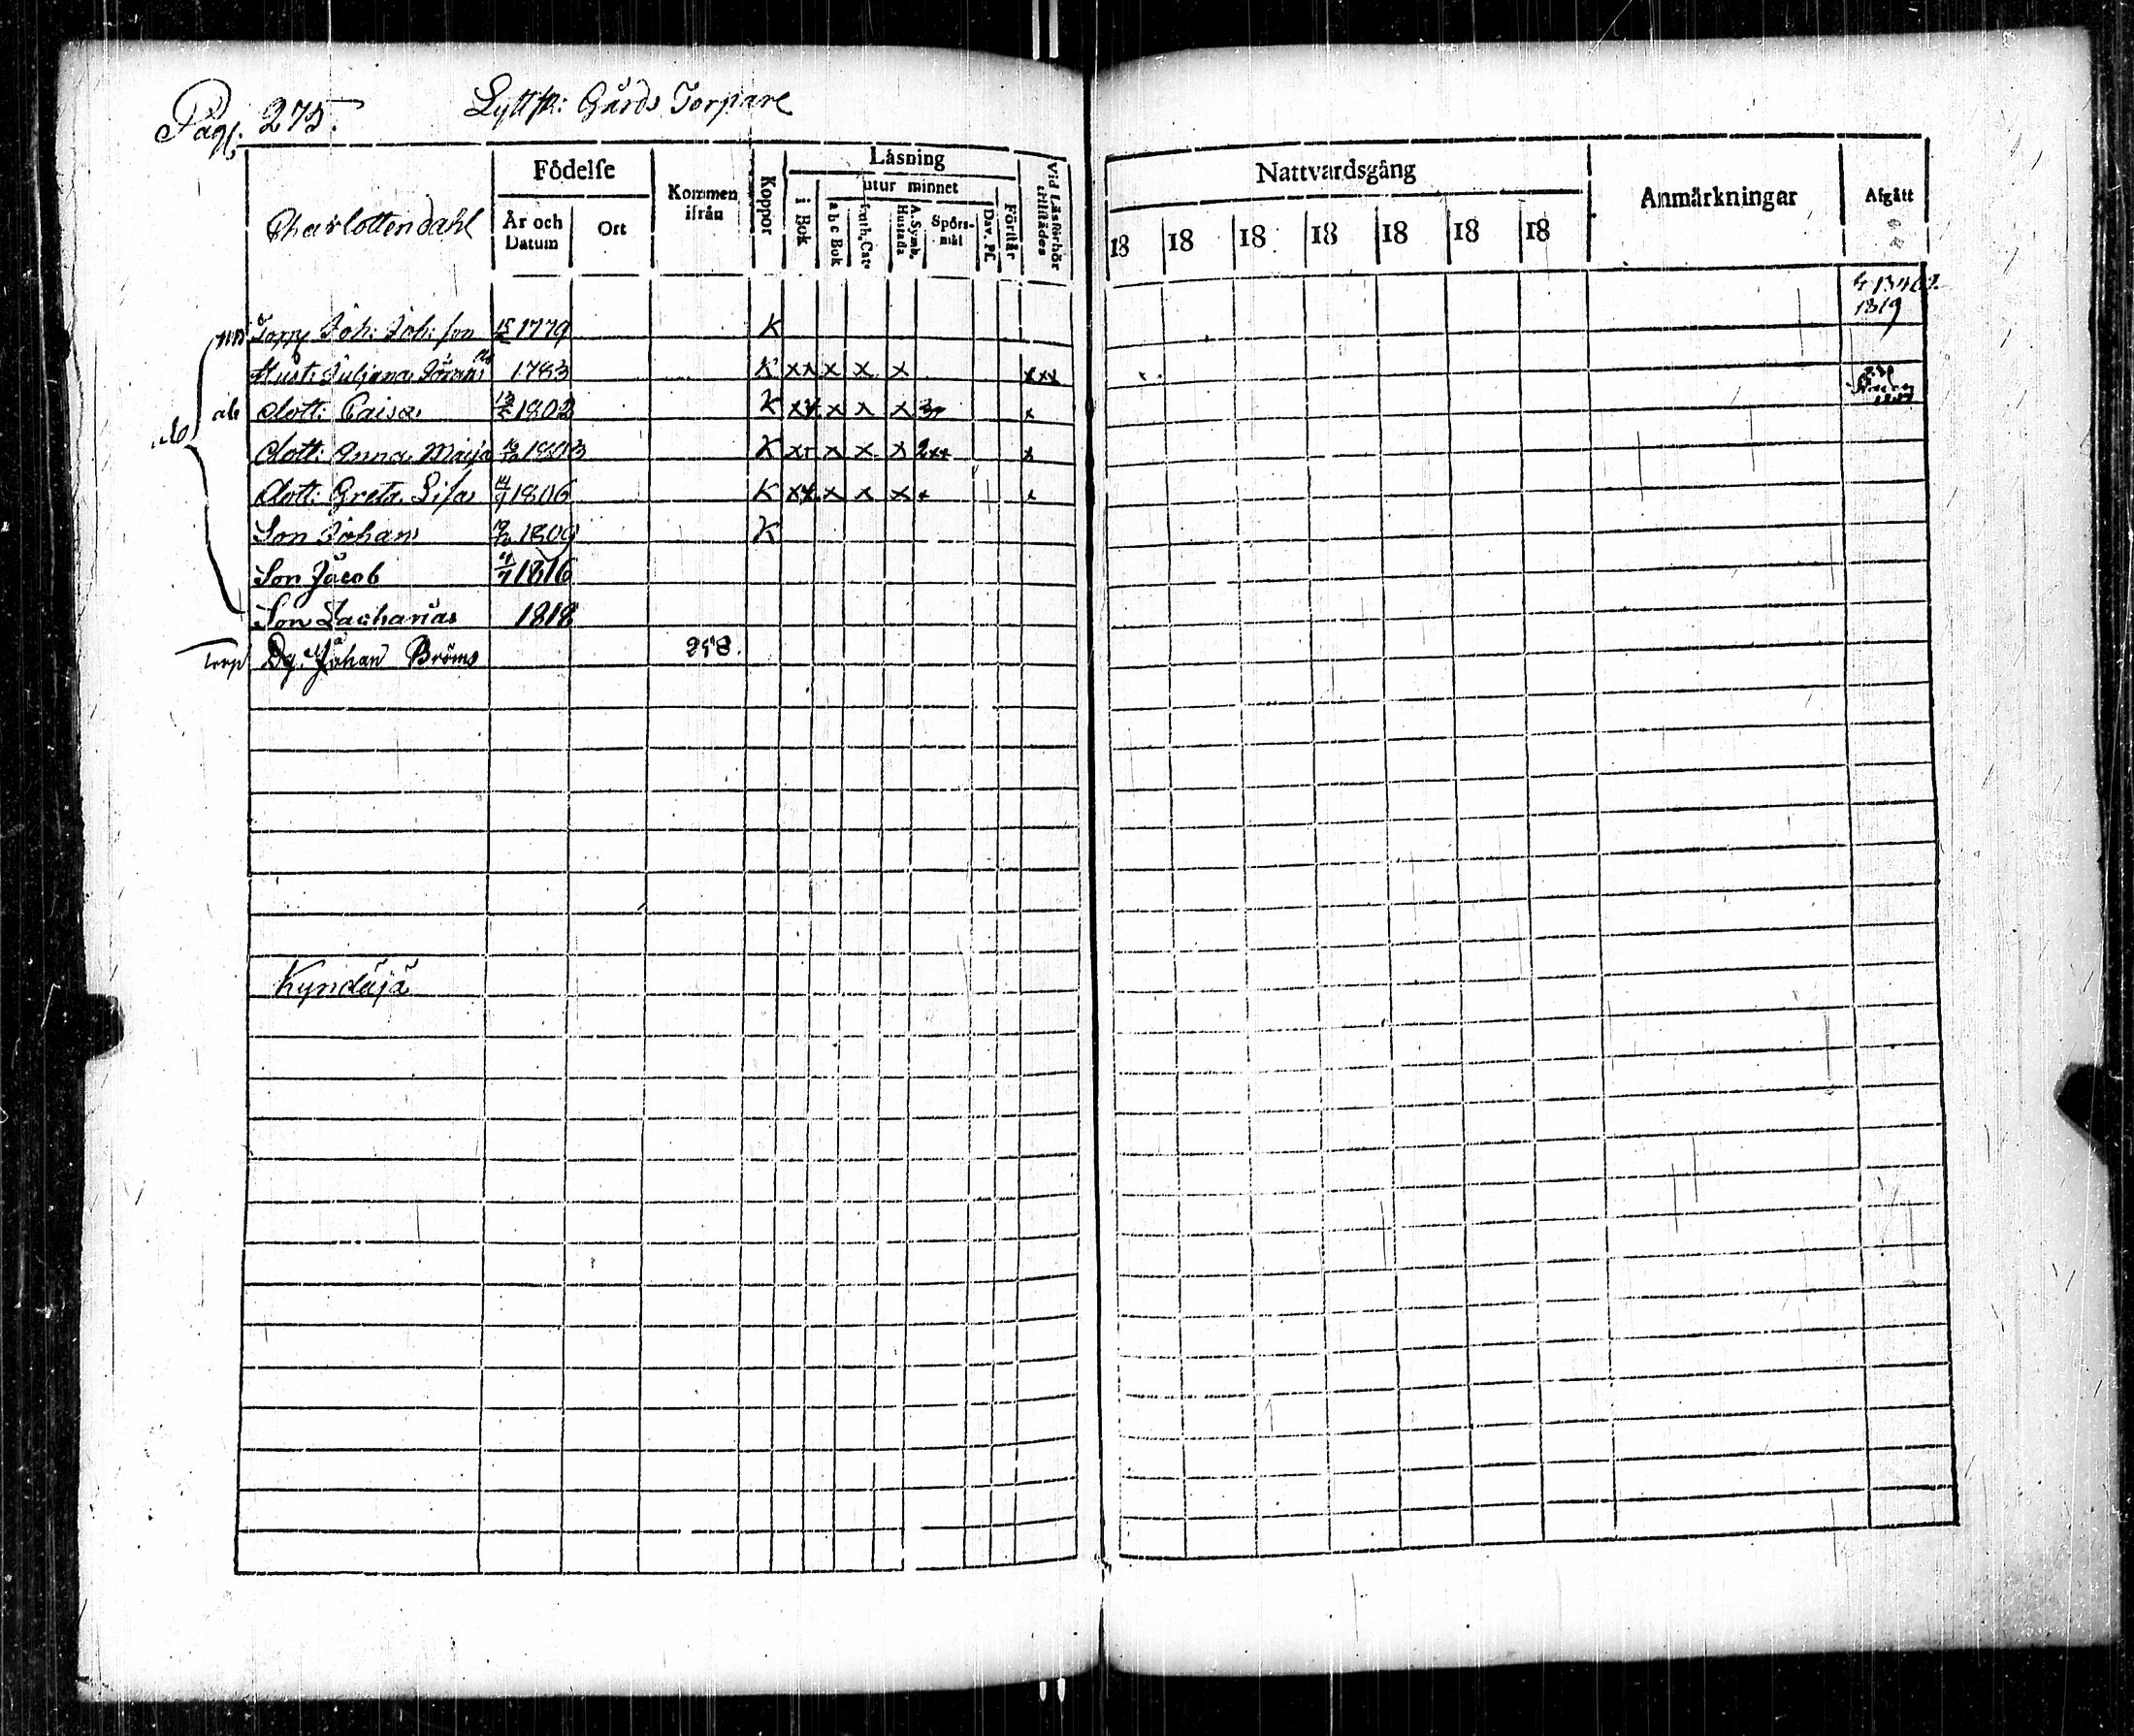 Pag. 275. Gårds Torpare
Charlottendahl
Födelse
År och Datum
Ort
Kommen ifrån
Koppor
Läsning
i Bok
utur minnet
a b c Bok
Luth. Cat.
A. Symb. Hustafla
Spörsmål
Dav. Ps.
Förstår
Vid Läsförhör tillstädes
Nattvardsgång
18 18 18 18 18 18 18
Anmärkningar
Afgått
Torp Joh: Joh: son 1779 K 1819
Hust: Juljana 1783 K xx x x x xxx
ab dott: Caisa 1802 K xx x x x x
dott: Anna Maija 1803 K xx x x x 2xx x
dott: Greta Lisa 1806 K xx x x x x x
Son Johan 1809 K
Son Jacob 1816
Son Zacharias 1818
Torp Dg. Johan Broms 258.
Kyndäjä